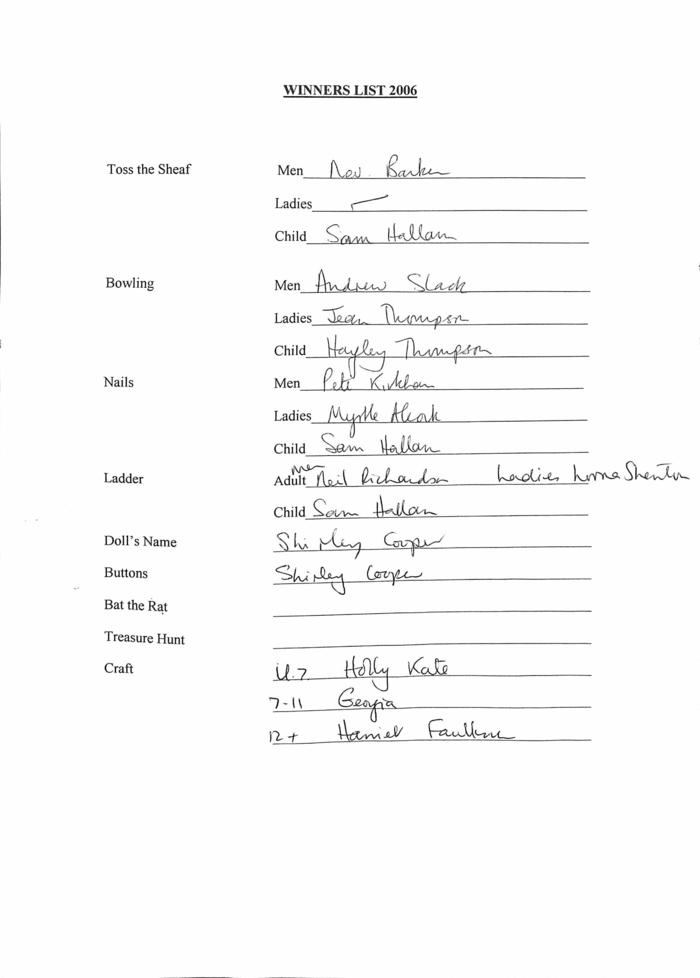 WINNERS LIST 2006
Toss the Sheaf Men Nev. Barker
Ladies —
Child Sam Hallam
Bowling Men Andrew Slack
Ladies Jean Thompson
Child Hayley Thompson
Nails Men Pete Kirkham
Ladies Myrtle Alcock
Child Sam Hallam
Ladder Adult Men Neil Richardson Ladies Lorna Shenton
Child Sam Hallam
Doll's Name Shirley Cooper
Buttons Shirley Cooper
Bat the Rat
Treasure Hunt
Craft U.7 Holly Kate
7-11 Georgia
12+ Faulkner